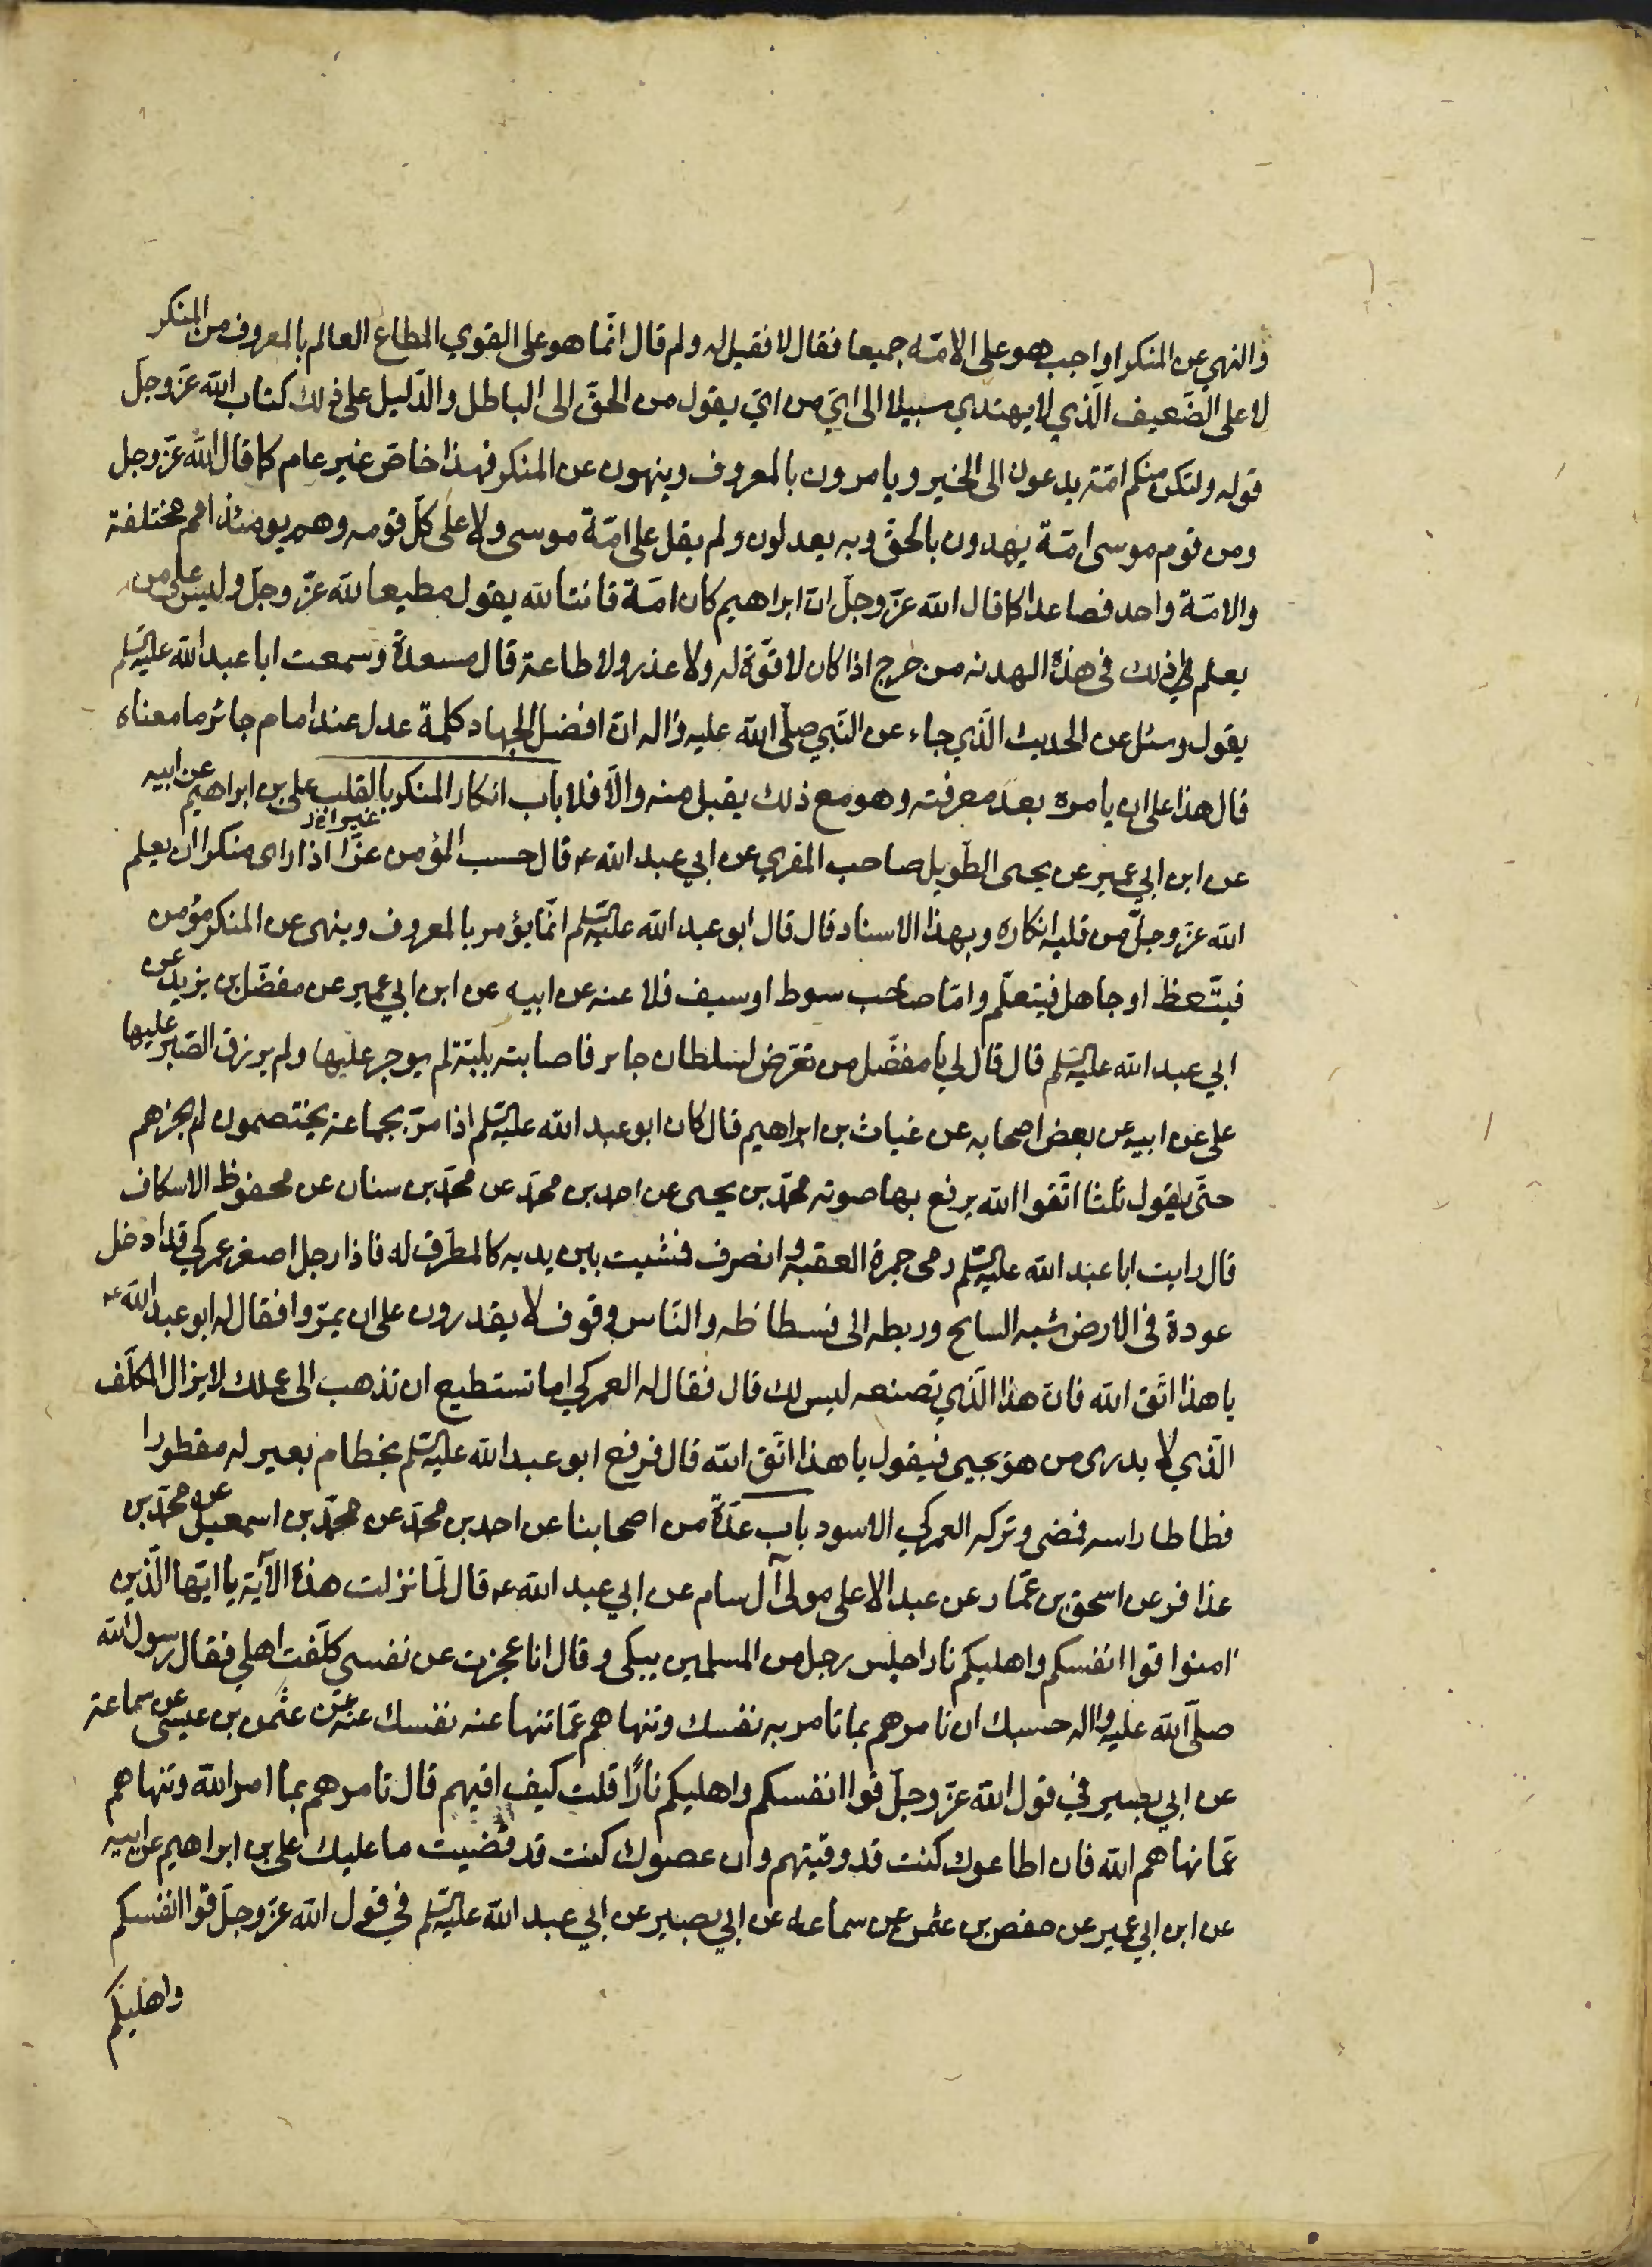 والنهي عن المنكر اواجب هو على الامّة جميعا فقال لا فقيل له ولم قال انّما هو على القوي المطاع العالم بالمعروف من المنكر
لا على الضّعيف الّذي لا يهتدي سبيلا الى ايّ من ايّ يقول من الحقّ الى الباطل والدّليل على ذلك كتاب الله عزّ وجلّ
قوله ولتكن منكم امّة يدعون الى الخير ويامرون بالمعروف وينهون عن المنكر فهذا خاصّ غير عام كما قال الله عزّ وجل
ومن قوم موسى امّة يهدون بالحقّ وبه يعدلون ولم يقل على امّة موسى ولا على كلّ قومه وهم يومئذ امم مختلفة
والامّة واحد فصاعدا كما قال الله عزّ وجلّ انّ ابراهيم كان امّة قانتا لله يقول مطيعا لله عزّ وجلّ وليس على من
يعلم ذلك في هذه الهدنه من حرج اذا كان لا قوّة له ولا عذر ولا طاعة قال مسعدة وسمعت ابا عبد الله عليه السّلم
يقول وسئل عن الحديث الّذي جاء عن النّبي صلّى الله عليه واله انّ افضل الجهاد كلمة عدل عند امام جائر ما معناه
قال هذا على ان يامره بعد معرفته وهو مع ذلك يقبل منه والّا فلا باب انكار المنكر بالقلب علي بن ابراهيم عن ابيه
عن ابن ابي عمير عن يحيى الطّويل صاحب المقري عن ابي عبد الله ع قال حسب المؤمن عزّا اذا راى منكرا ان يعلم
الله عزّ وجلّ من قلبه انكاره وبهذا الاسناد قال قال ابو عبد الله عليه السّلم انّما يؤمر بالمعروف وينهى عن المنكر مؤمن
فيتّعظ او جاهل فيتعلّم وامّا صاحب سوط او سيف فلا عنه عن ابيه عن ابن ابي عمير عن مفضّل بن يزيد عن
ابي عبد الله عليه السّلم قال قال لي يا مفضّل من تعرّض لسلطان جاير فاصابته بليّة لم يوجر عليها ولم يرزق الصّبر عليها
علي عن ابيه عن بعض اصحابه عن غياث بن ابراهيم قال كان ابو عبد الله عليه السّلم اذا مرّ بجماعة يختصمون لم يجزهم
حتّى يقول ثلثا اتّقوا الله يرفع بها صوته محمّد بن يحيى عن احمد بن محمّد عن محمّد بن سنان عن محفوظ الاسكاف
قال رايت ابا عبد الله عليه السّلم رمى جمرة العقبه وانصرف فمشيت بين يديه كالمطرّق له فاذا رجل اصفر عمركي قد ادخل
عودة في الارض شبه السايح وربطه الى فسطاطه والنّاس وقوف لا يقدرون على ان يمرّوا فقال له ابو عبد الله ع
يا هذا اتّق الله فانّ هذا الّذي تصنعه ليس لك قال فقال له العمركي اما تستطيع ان تذهب الى عملك لا يزال المكلّف
الّذي لا يدرى من هو يجيى فيقول يا هذا اتّق الله قال فرفع ابو عبد الله عليه السّلم بخطام بعير له مقطورا
فطاطا راسه فمضى وتركه العمركي الاسود باب عدّة من اصحابنا عن احمد بن محمّد عن محمّد بن اسمعيل عن محمّد بن
عذافر عن اسحق بن عمّار عن عبد الاعلى مولى آل سام عن ابي عبد الله ع قال لمّا نزلت هذه الآية يا ايّها الّذين
امنوا قوا انفسكم واهليكم نارا جلس رجل من المسلمين يبكى وقال انا عجزت عن نفسي كلّفت اهلي فقال رسول الله
صلّى الله عليه واله حسبك ان تامرهم بما تامر به نفسك وتنهاهم عمّا تنها عنه نفسك عنه عن عثمن بن عيسى عن سماعة
عن ابي بصير في قول الله عزّ وجلّ قوا انفسكم واهليكم نارًا قلت كيف اقيهم قال تامرهم بما امر الله وتنهاهم
عمّا نهاهم الله فان اطاعوك كنت قد وقيتهم وان عصوك كنت قد قضيت ما عليك علي بن ابراهيم عن ابيه
عن ابن ابي عمير عن حفص بن عثمن عن سماعه عن ابي بصير عن ابي عبد الله عليه السّلم في قول الله عزّ وجلّ قوا انفسكم
واهليكم